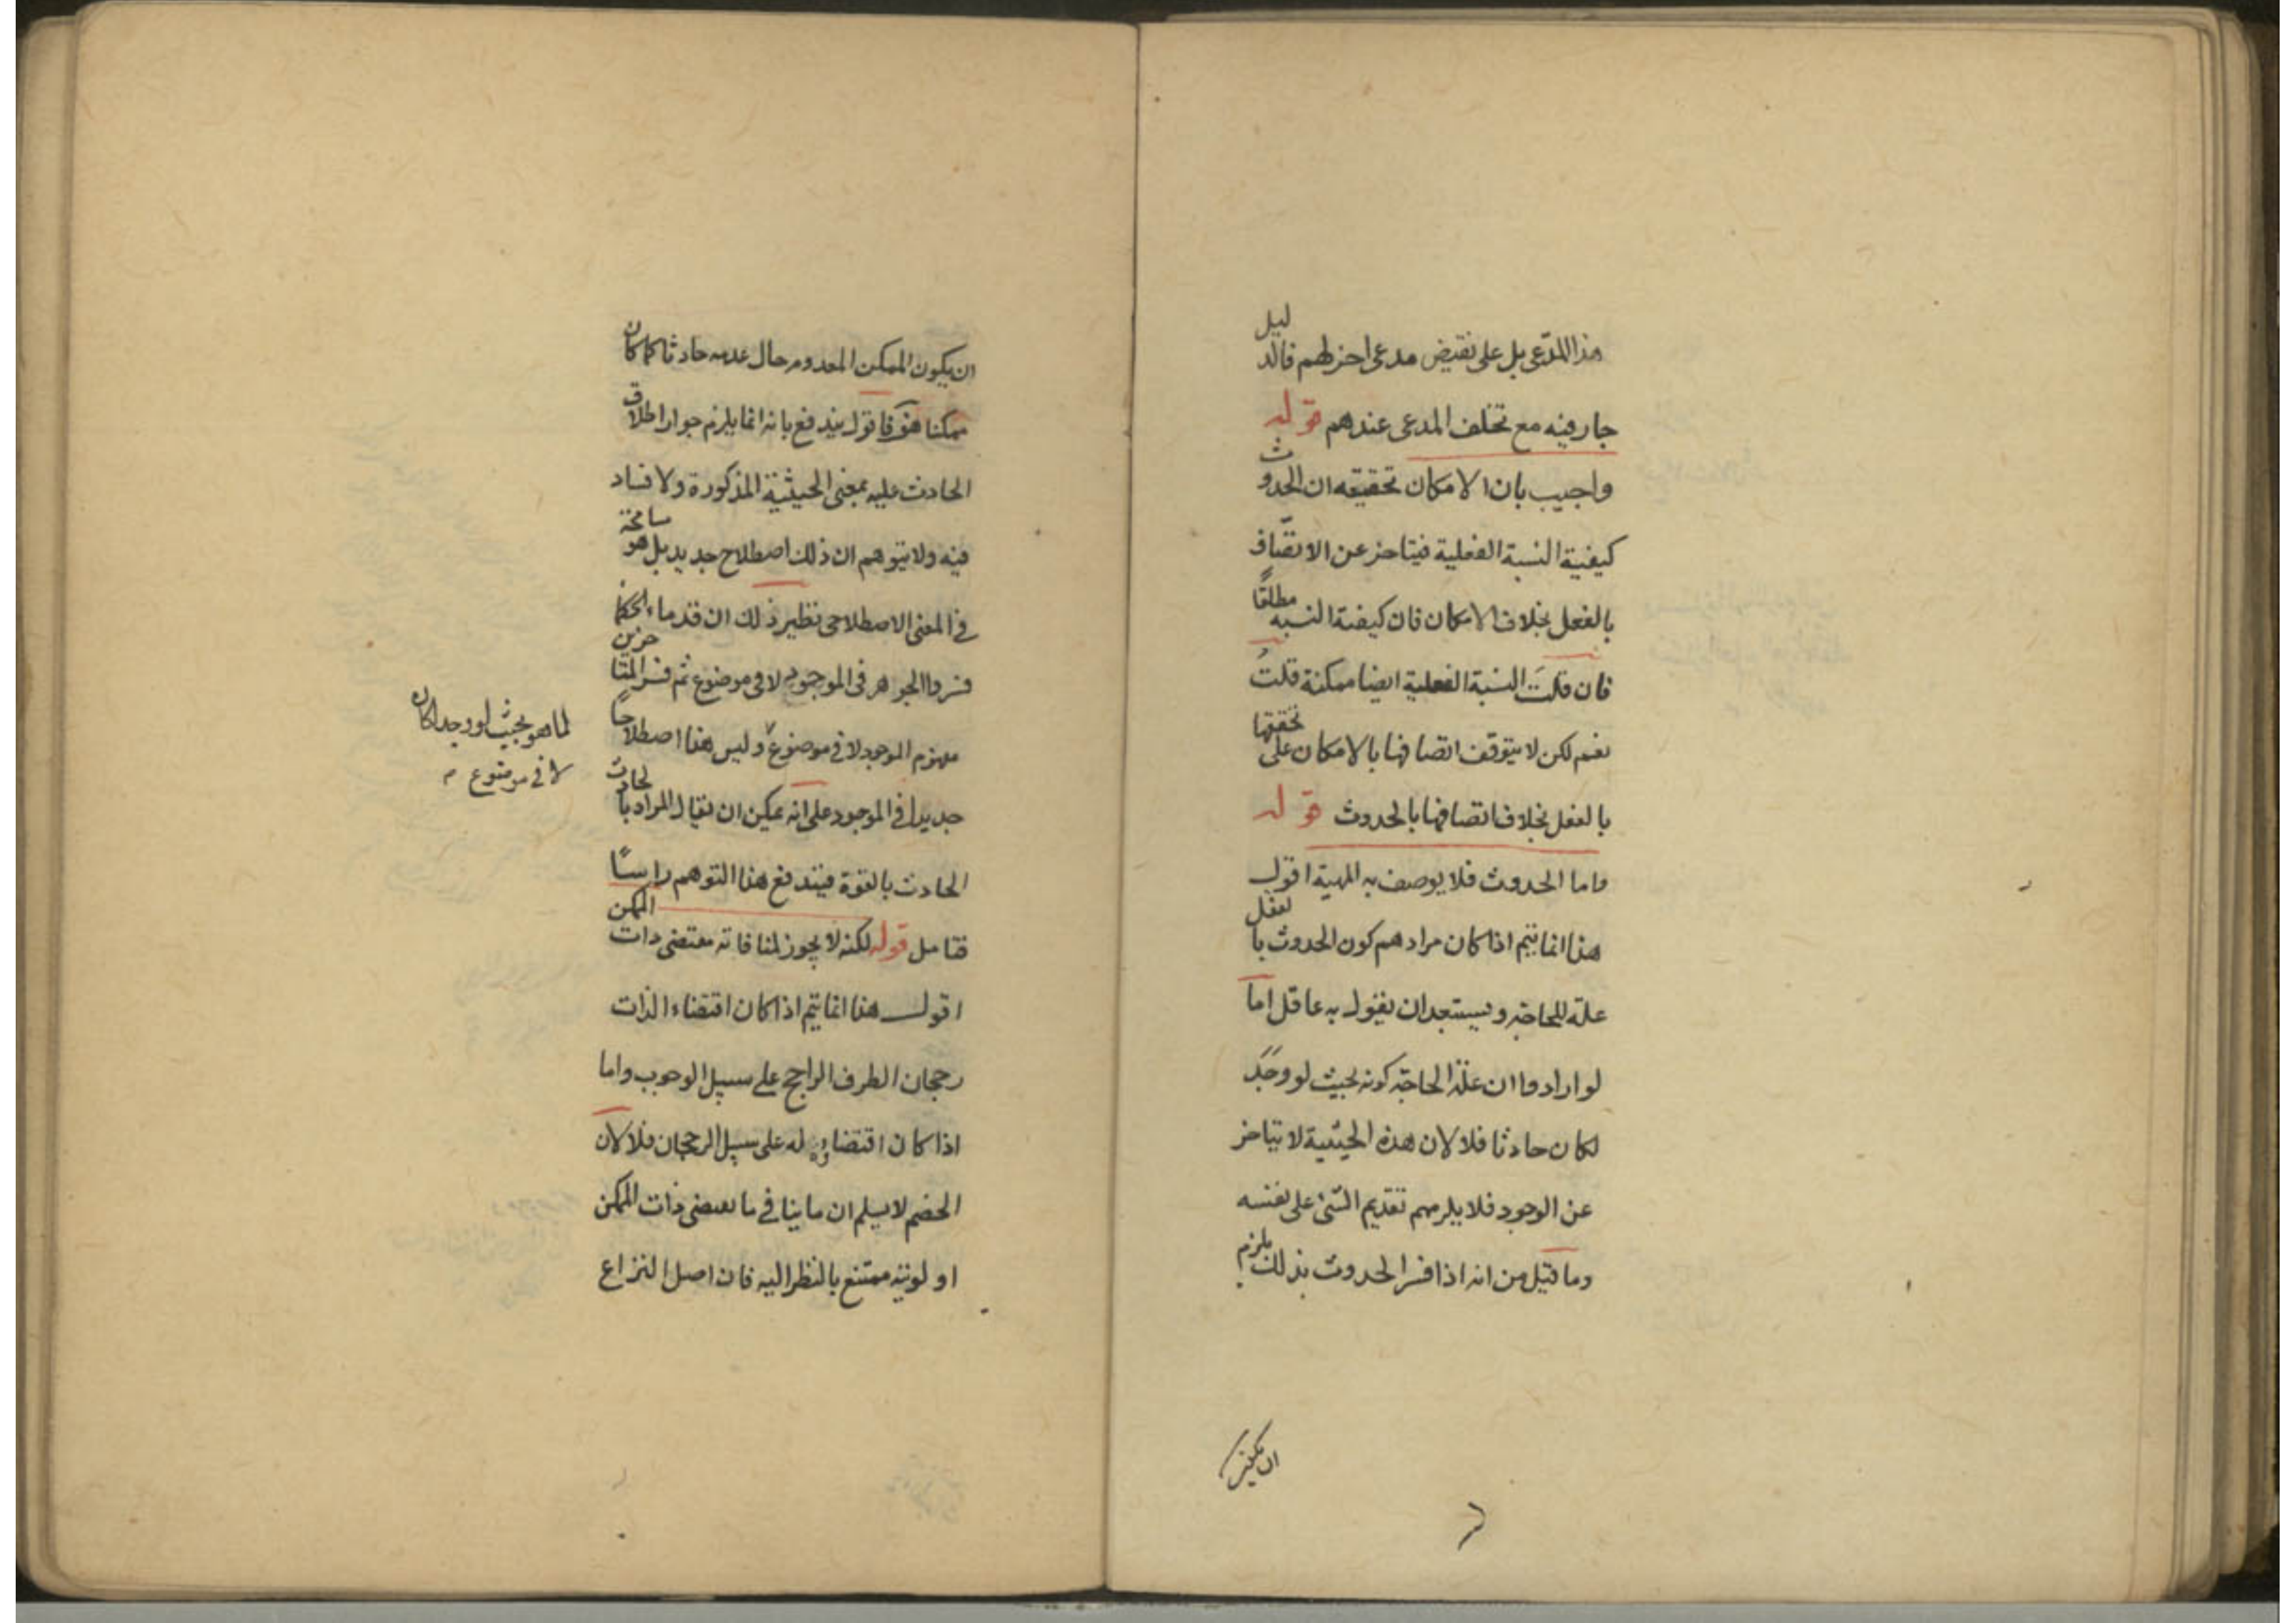 هذا المدّعى بل على نقيض مدعى اخر لهم فالدليل
جار فيه مع تخلف المدعى عندهم قوله
واجيب بان الامكان تحقيقه ان الحدوث
كيفية النسبة الفعلية فيتاخر عن الاتّصاف
بالفعل بخلاف الامكان فان كيفية النسبه مطلقًا
فان قلتَ النسبة الفعلية ايضا ممكنة قلتُ
نعم لكن لا يتوقف اتصافها بالامكان على تحققها
بالفعل بخلاف اتصافها بالحدوث قوله
واما الحدوث فلا يوصف به المهية اقول
هذا انما يتم اذا كان مرادهم كون الحدوث بالفعل
علة للحاجة ويستبعد ان يقول به عاقل اما
لو ارادوا ان علة الحاجة كونه بحيث لو وجد
لكان حادثا فلا لان هذه الحيثية لا تتاخر
عن الوجود فلا يلزمهم تقديم الشئ على نفسه
وما قيل من انه اذا فسر الحدوث بذلك يلزم
ان يكون
ان يكون الممكن المعدوم حال عدمه حادثا كما كان
ممكنا فاقول يندفع بانه انما يلزم جواز اطلاق
الحادث عليه بمعنى الحيثية المذكورة ولا فساد
فيه ولا يتوهم ان ذلك اصطلاح جديد بل هو مسامحة
في المعنى الاصطلاحى نظير ذلك ان قدماء الحكما
فسروا الجوهر فى الموجود لا فى موضوع ثم فسر المتاخرين
مفهوم الموجود لا في موضوع وليس هذا اصطلاحًا
لما هو بحيث لو وجد لكان
لا فى موضوع
جديدا في الموجود على انه يمكن ان يقال المراد بالحادث
الحادث بالقوة فيندفع هذا التوهم راسًا
فتامل قوله لكنه لا يجوز لمنافاته مقتضى ذات الممكن
اقول هذا انما يتم اذا كان اقتضاء الذات
رجحان الطرف الراجح على سبيل الوجوب واما
اذا كان اقتضاؤه له على سبيل الرجحان فلا لان
الخصم لا يسلم ان ما ينافي ما يقتضى ذات الممكن
اولويته ممتنع بالنظر اليه فان اصل النزاع